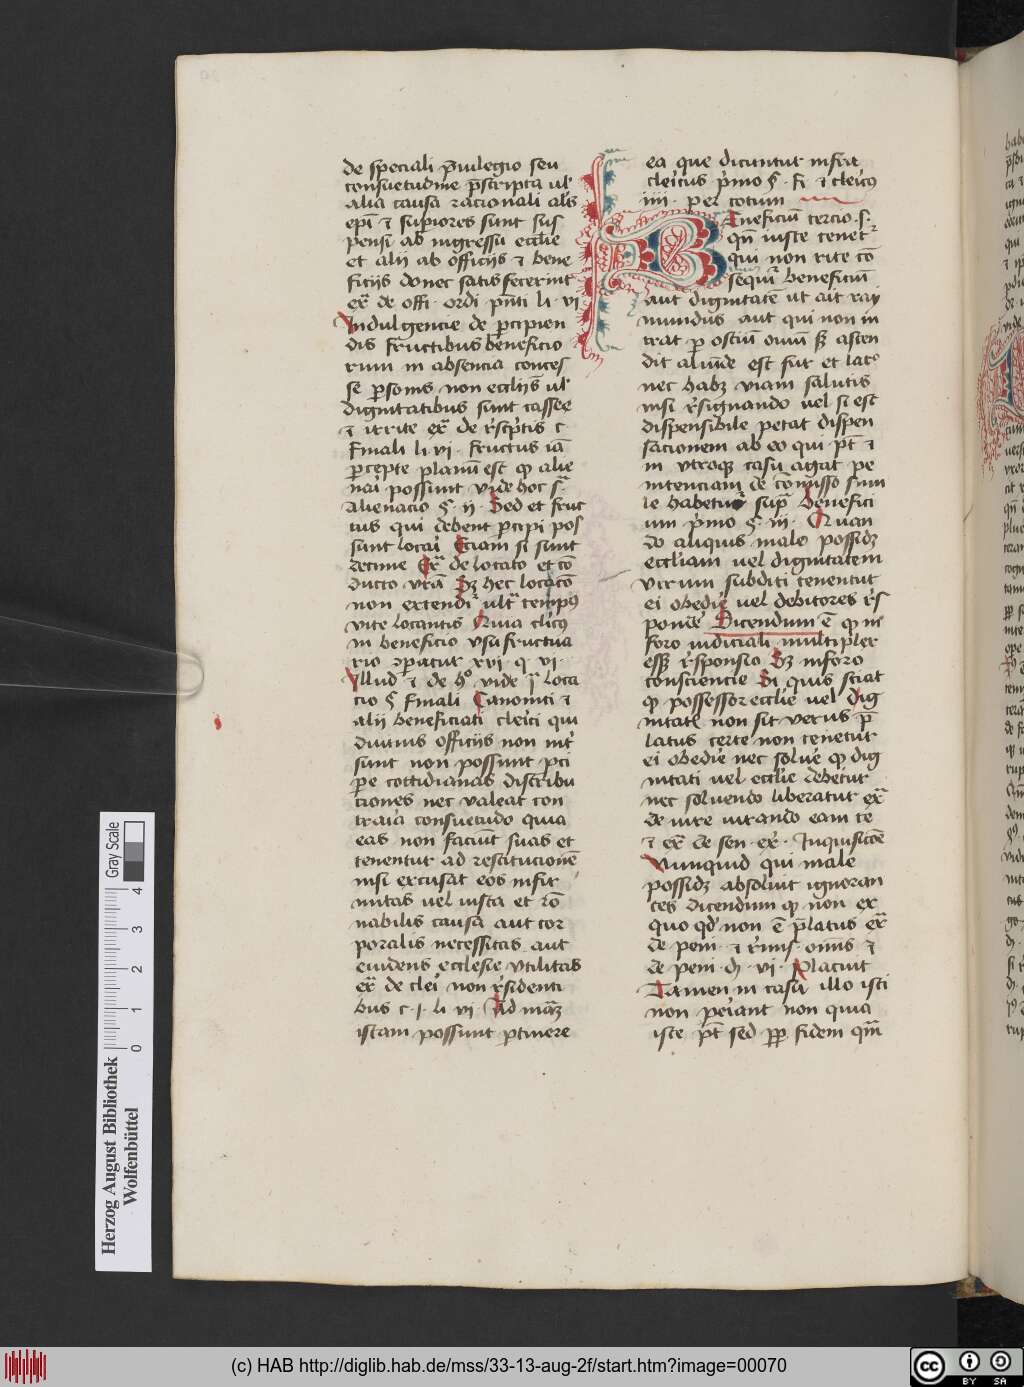 de speciali p̄uilegio seu
consuetudine p̄scripta ul'
alia causa racionali al's
ep̄i ⁊ sup̄iores sunt sus
pensi ab ingressu eccl̄ie
et alij ab officijs ⁊ bene
ficijs donec satisfecerint
ex̄ de offi · ordi p̄n̄ti li · vi
Indulgencie de p̱cipien
dis fructibus beneficio
rum in absencia conces
se p̱sonis non eccl̄ijs ul'
dignitatibus sunt casse
⁊ irrite ex̄ de rescp̄tis c
finali li · vi · fructus iā
p̱cepte planū est qꝫ alie
nāi possunt vide hoc s̄
alienacio § · ij · Sed et fruc
tus qui debent p̱cipi pos
sunt locāi Eciam si sunt
decime Ex̄ de locato et cō
ducto vrā Sꝫ hec locacō
non extendīt ult̄ tempꝰ
vite locantis Quia cl̄icꝰ
in beneficio usufructua
rio ꝯparatur xvi · q · vi ·
Illud ⁊ de hͦ vide ī loca
cio § finali Canonici ⁊
alij beneficiati cleīci qui
diuinis officijs non int̄
sunt non possunt p̱ci
p̱e cottidianas distribu
ciones nec valeat con
traīa consuetudo quia
eas non faciūt suas et
tenentur ad restitucionē
nisi excusat eos infir
mitas uel iusta et rō
nabilis causa aut cor
poralis necessitas aut
euidens ecclesie vtilitas
ex̄ de cleī non r̄sidenti
bus c · j · li vi · Ad māꝫ
istam possunt p̱tinere
ea que dicuntur infra
cleīcus p̄mo § · fi ⁊ cleīcꝰ
iiii · per totum
Beneficiū tercio · s̄ ·
qn̄ iuste tenet᷑
qui non rite cō
sequit᷑ beneficiū
aut dignitatē ut ait ray
mundus aut qui non in
trat p̱ ostiū ouiū sꝫ ascen
dit aliūde est fur et latͦ
nec habꝫ viam salutis
nisi r̄signando uel si est
dispensibile petat dispen
sacionem ab eo qui p̄t ⁊
in vtroqꝫ casu agat pe
nitenciam de cōmisso simi
le habetur sup̄ benefici
um p̄mo § · iii · Quan
do aliquis male possidꝫ
eccl̄iam uel dignitatem
vtrum subditi tenentur
ei obedīe uel debitores r̄s
pondē Dicendum ē qꝫ in
foro iudiciali multipler
esꝫ r̄sponsio Sꝫ in foro
consciencie Si quis sciat
qꝫ possessor eccl̄ie uel dig
nitatē non sit verus p̄
latus certe non tenetur
ei obedīe nec soluē qꝫ dig
nitati uel eccl̄ie debetur
nec soluendo liberatur ex̄
de iure iurando eam te
⁊ ex̄ de sen · ex̄ · Inquisicōe
Nunquid qui male
possidꝫ absoluit ignoran
tes dicendum qꝫ non ex
quo qd̓ non ē p̄latus ex̄
de peni · ⁊ r̄mis · omnis ⁊
de peni · di · vi · Placuit
Tamen in casu illo isti
non peīant non quia
iste p̄t sed p̱p̱ fidem qm̄
Herzog August Bibliothek
Wolfenbüttel
0 1 2 3 4
Gray Scale
(c) HAB http://diglib.hab.de/mss/33-13-aug-2f/start.htm?image=00070
cc BY SA